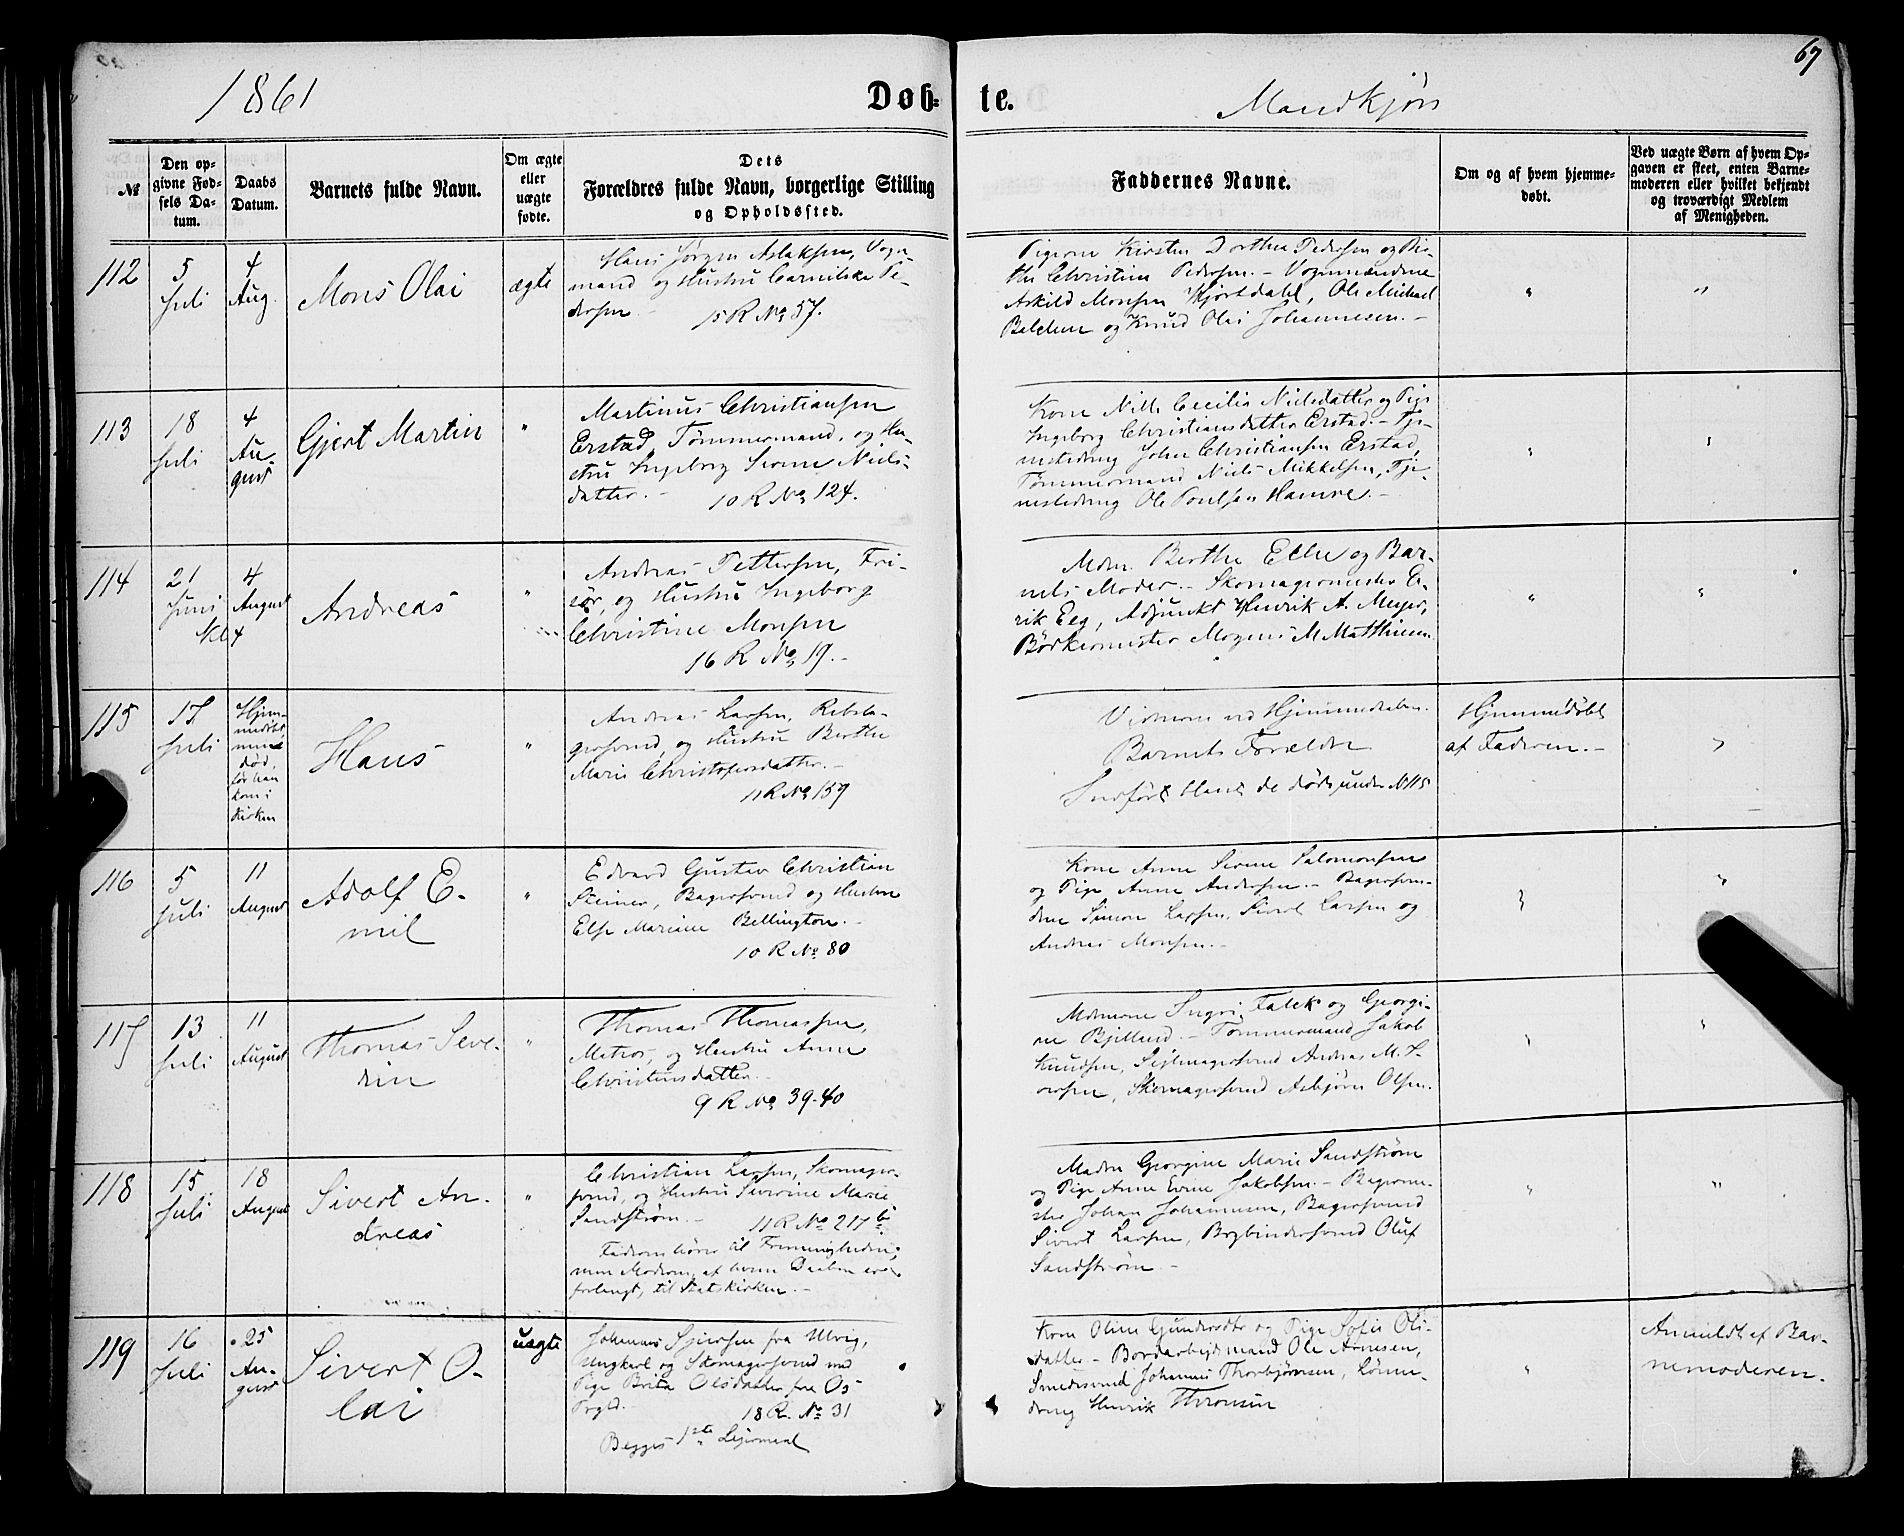 67
1861
Døb-
te.
Mandkjøn
№
Den op-
givne Fød-
sels Da-
tum.
Daabs
Datum.
Barnets fulde Navn.
Om ægte
eller
uægte
fødte.
Dets
Forældres fulde Navn, borgerlige Stilling
og Opholdssted.
Faddernes Navne.
Om og af hvem hjemme-
døbt.
Ved uægte Børn af hvem Op-
gaven er skeet, enten Barne-
moderen eller hvilket bekjendt
og troværdigt Medlem
af Menigheden.
112
5
Juli
4
Aug.
Mons Olai
ægte
Hans Jørgen Aslaksen, Vogn-
mand og Hustru Pe-
dersen.
15 R No 57.
Pigerne Kirsten Dorthea Pedersen og
Christine Pedersen. - Vognmændene
Askild Monsen Hjortdahl, Ole Michael
og Knud Olai Johannesen. -
"
"
113
18
Juli
4
Au-
gust
Gjert Martin
"
Martinus Christiansen
Erstad, Tømmermand, og Hu-
stru Ingeborg Serene Niels-
datter. -
10 R No 124.
Kone Cecilia Nielsdatter og Pige
Ingeborg Christiansdatter Erstad. - Tje-
nestedreng John Christiansen Erstad,
Tømmermand Niels Mikkelsen, Tje-
nestedreng Ole Poulsen Hamre. -
"
"
114
21
Juni
Kl 4
4
August
Andreas
"
Andreas Pettersen, Fri-
sør, og Hustru Ingeborg
Christine Monsen
16 R No 19. -
Mdm. Berthe og Bar-
nets Moder. - Skomagermester E-
rik Eeg, Adjunkt Henrik A. Meyer,
Bødkermester Mogens M Matthiesen
"
"
115
17
Juli
Hjem-
medøbt,
men
død,
før han
kom i
Kirken
Hans
"
Andreas Larsen, Rebsla-
gersvend, og Hustru Berthe
Marie Christofersdatter. -
11 R No 159
Vidnerne ved Hjemmedaaben.
Barnets Forældre
Indført blandt de døde under N 115
Hjemmedøbt
af Faderen. -
"
116
5
Juli
11
August
Adolf E-
mil
"
Edvard Gustav Christian
Steiner, Bagersvend og Hustru
Else Mariane Bellington. -
10 R No 80
Kone Anne Serene Salomonsen
og Pige Anne Andersen. - Bagersven-
dene Simon Larsen, Sivert Larsen og
Andreas Monsen. -
"
"
117
13
Juli
11
August
Thomas Seve-
rin
"
Thomas Thomassen,
Matros, og Hustru Anne
Christensdatter. -
9 R No 39-40
Mdmerne Ingri Falck og Georgi-
ne Bjelland. - Tømmermand Jakob
Knudsen, Seglmagersvend Andreas M.
Skomagersvend Asbjørn Olsen.
"
"
118
15
Juli
18
August
Sivert An-
dreas
"
Christian Larsen, Skomager-
svend, og Hustru Severine Marie
Sandstrøm. -
11 R No 217 b
Faderen hører til Frimenigheden,
men Moderen, af hvem Daaben er
forlangt, til Statskirken. -
Madm Georgine Marie Sandstrøm
og Pige Anne Evine Jakobsen. - Bagerme-
ster Johan Johannesen, Bagersvend
Sivert Larsen, Bogbindersvend Oluf
Sandstrøm. -
"
"
119
16
Juli
25
Au-
gust
Sivert O-
lai
uægte
Johannes fra Ulvig,
Ungkarl og Skomagersvend med
Pige Brita Olsdatter fra Os
Prgld.
18 R. No 31
Begges 1ste Leiermaal
Kone Oline Gundersdtr og Pige Sofie Ols-
datter - Bordarbejdsmand Ole Arnesen,
Smedesvend Johannes Thorbjørnsen,
dreng Henrik Thronsen
"
Anmeldt af Bar-
nemoderen.